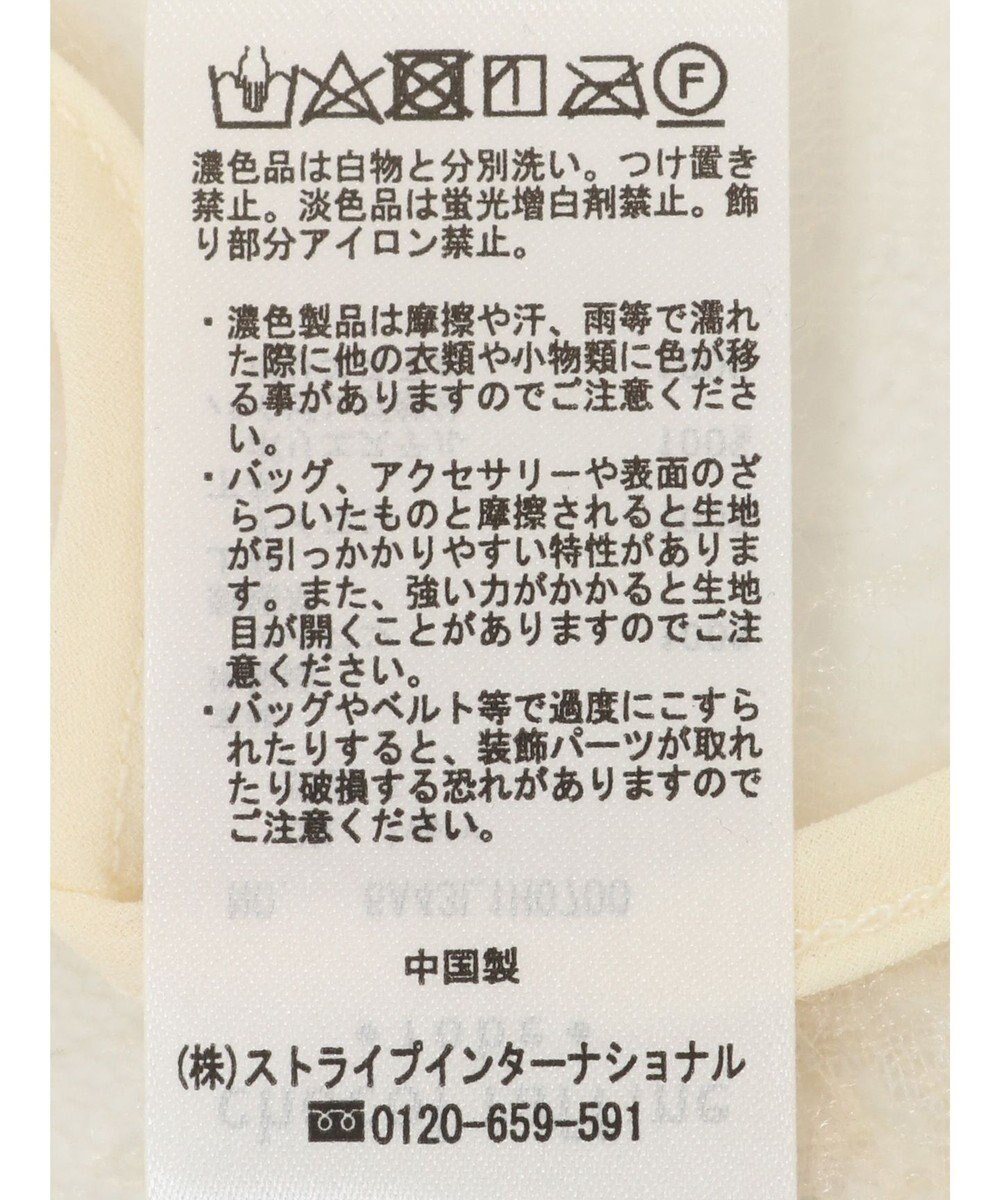 濃色品は白物と分別洗い。つけ置き
禁止。淡色品は蛍光増白剤禁止。飾
り部分アイロン禁止。
・濃色製品は摩擦や汗、雨等で濡れ
た際に他の衣類や小物類に色が移
る事がありますのでご注意くださ
い。
・バッグ、アクセサリーや表面のざ
らついたものと摩擦されると生地
が引っかかりやすい特性がありま
す。また、強い力がかかると生地
目が開くことがありますのでご注
意ください。
・バッグやベルト等で過度にこすら
れたりすると、装飾パーツが取れ
たり破損する恐れがありますので
ご注意ください。
中国製
(株)ストライプインターナショナル
0120-659-591